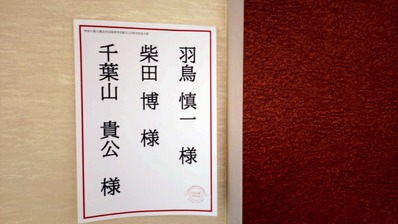 羽鳥 慎一 様
柴田 博 様
千葉山 貴公 様